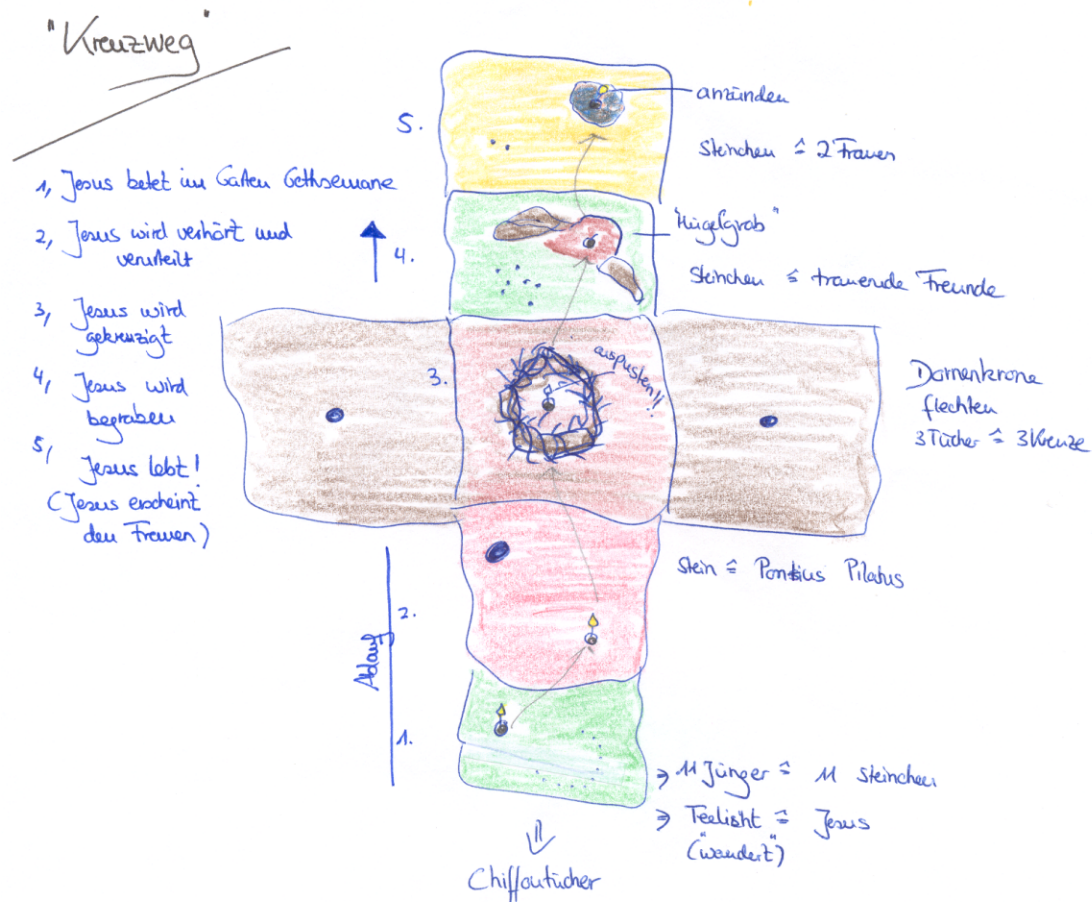 "Kreuzweg"
1, Jesus betet im Garten Gethsemane
2, Jesus wird verhört und
verurteilt
3, Jesus wird
gekreuzigt
4, Jesus wird
begraben
5, Jesus lebt!
(Jesus erscheint
den Frauen)
Ablauf
5.
anzünden
Steinchen ≙ 2 Frauen
4.
"Hügelgrab"
Steinchen ≙ trauernde Freunde
3.
auspusten!!
Dornenkrone
flechten
3 Tücher ≙ 3 Kreuze
2.
Stein ≙ Pontius Pilatus
1.
⇒ 11 Jünger ≙ 11 Steinchen
⇒ Teelicht ≙ Jesus
("wandert")
Chiffontücher